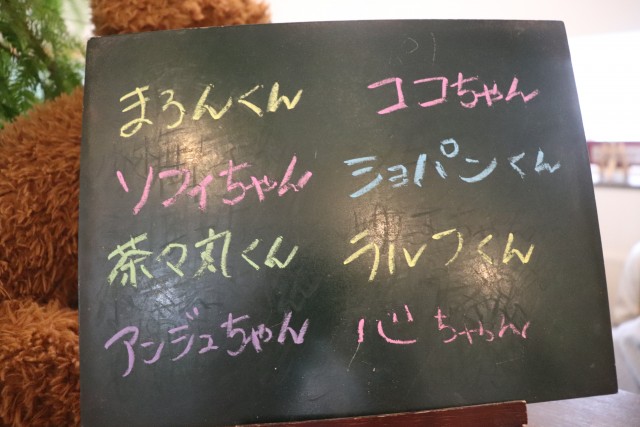 まろんくん
ココちゃん
ソフィちゃん
ショパンくん
茶々丸くん
ラルフくん
アンジュちゃん
心ちゃん